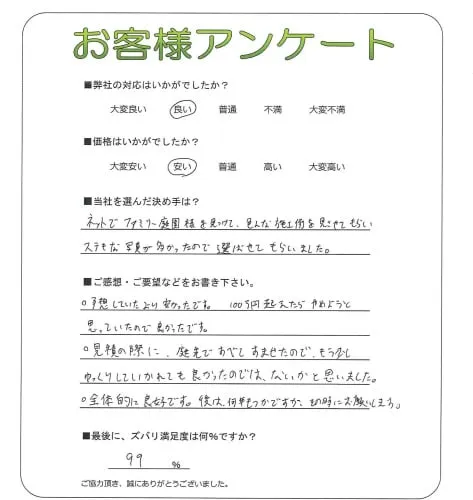 お客様アンケート
■弊社の対応はいかがでしたか？
大変良い 良い 普通 不満 大変不満
■価格はいかがでしたか？
大変安い 安い 普通 高い 大変高い
■当社を選んだ決め手は？
ネットでファミリー庭園様を見つけて、色んな施工術を見させてもらい
ステキな写真が多かったので選ばせてもらいました。
■ご感想・ご要望などをお書き下さい。
○予想していたより安かったです。 100万円超えたらやめようと
思っていたので良かったです。
○見積の際に、庭先ですべてすませたので、もう少し
ゆっくりしていかれても良かったのでは、ないかと思いました。
○全体的に良好です。後は、何年もつかですか、その時にお願いします。
■最後に、ズバリ満足度は何％ですか？
99 %
ご協力頂き、誠にありがとうございました。